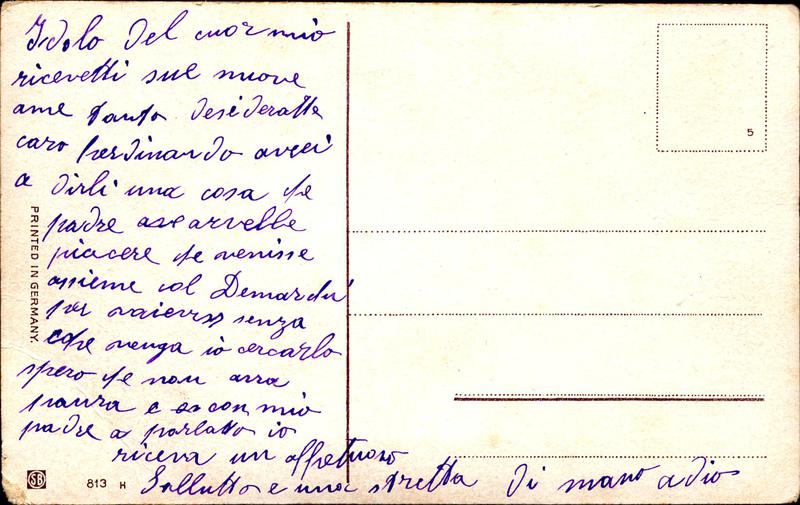 Idolo del cuor mio
ricevetti sue nuove
ame tanto desideratte
caro ferdinando avrei
a dirli una cosa che
padre arvebbe
piacere che venisse
assieme col
per senza
che venga io cercarlo
spero che non avra
paura e con mio
padre a parlatto io
riceva un affetuoso
Sallutto e una stretta di mano adio
PRINTED IN GERMANY.
SB
813 H
5